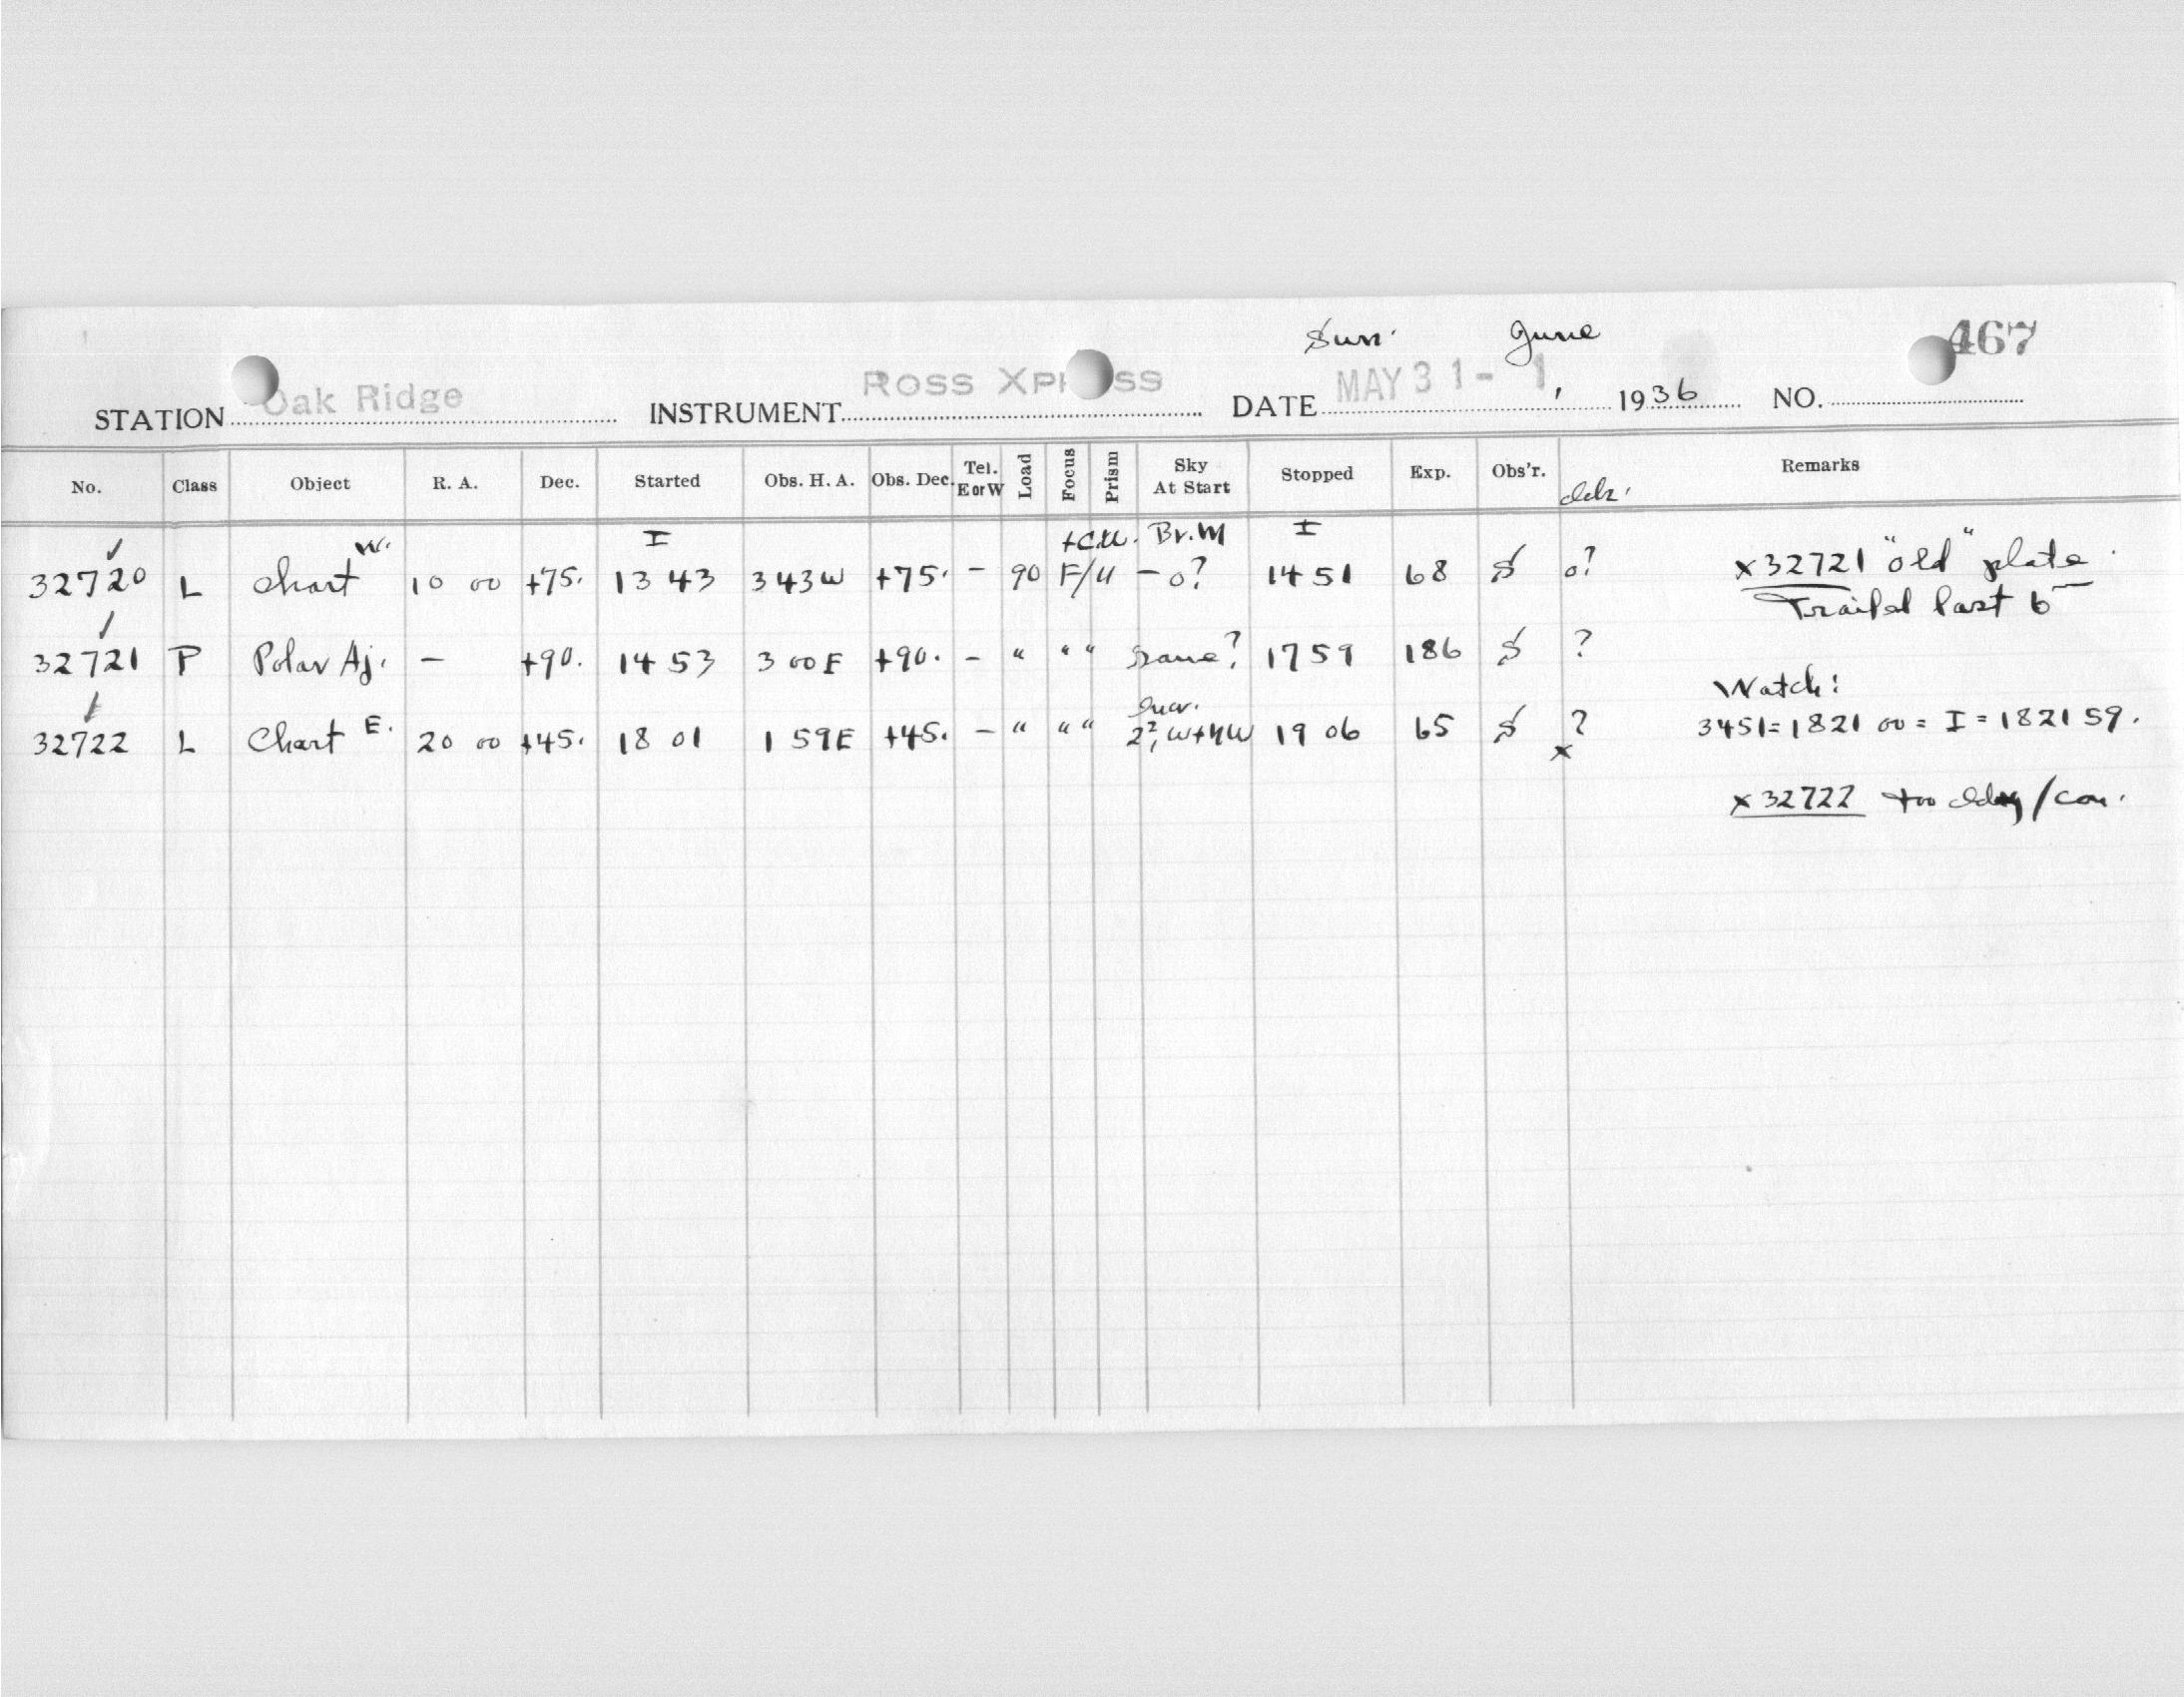 Sun. June 467
STATION Oak Ridge INSTRUMENT ROSS XPRESS DATE MAY 31 - 1, 1936 NO.
No. Class Object R. A. Dec. Started Obs. H. A. Obs. Dec. Tel. E or W Load Focus Prism Sky At Start Stopped Exp. Obs'r. Remarks
I Br. M I
32720 L Chart W. 10 00 +75. 13 43 3 43W +75. - 90 F/4 - 0? 14 51 68 S 0? x 32721 "old" plate.
Trailed last 6
32721 P Polar Aj. - +90. 14 53 3 00E +90. - " " " Same? 17 59 186 S ?
Watch:
32722 L Chart E. 20 00 +45. 18 01 1 59E +45. - " " " 2?, W+NW 19 06 65 S ? 3451 = 1821 00 = I = 1821 59.
x
x 32722 too cldy/con.